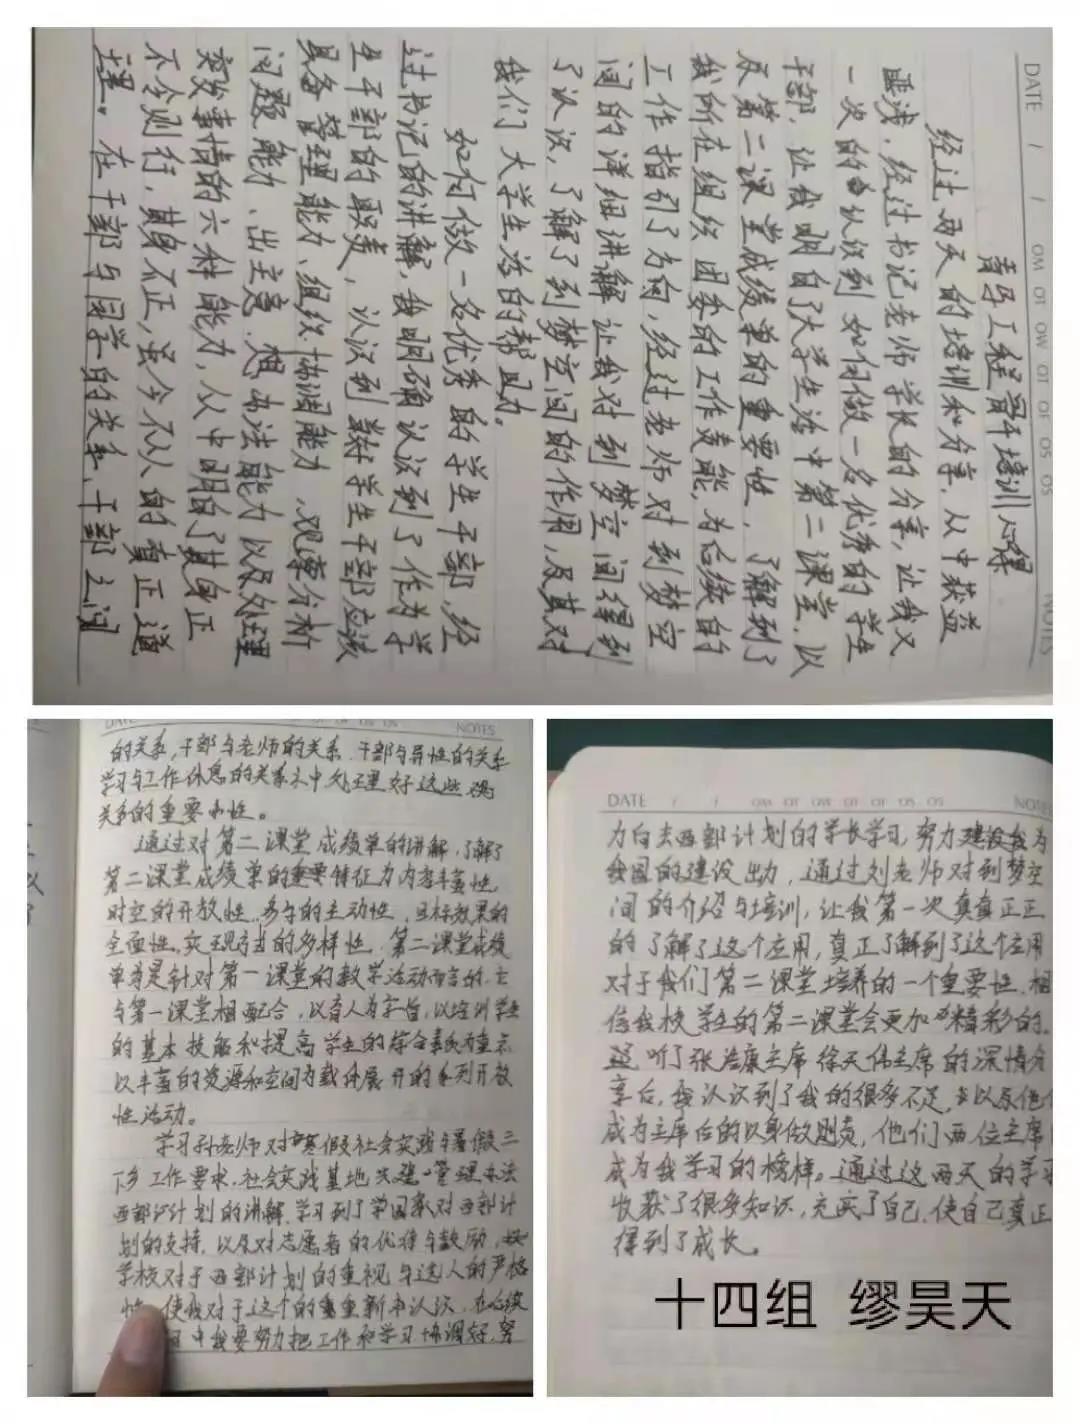 DATE / / OM OT OW OT OF OS OS
NOTES
青马工程骨干培训心得
经过两天的培训和分享，从中获益
匪浅，经过书记老师学长的分享，让我又
一次的认识到如何做一名优秀的学生
干部，让我明白了大学生活中第二课堂，以
及第二课堂成绩单的重要性，了解到了
我所在组织团委的工作责能，为后续自的
工作指引了方向，经过老师对到梦空
间的详细讲解让我对到梦空间得到
了认汉，了解了到梦空间的作用，及其对
我们大学生活的帮助。
如何做一名优秀的学生干部，经
过书记的讲解，我明确认识到了作为学
生干部的职责，认识到新学生干部应该
具备管理能力、组织协调能力，观察分析
问题能力、出主意、想办法能力以及处理
突发事情的六种能力，从中明白了其身正
不令则行，其身不正，虽令不从的真正道
理。在干部与同学的关系，干部之间
DATE OT OF OS OS
NOTES
的关系，干部与老师的关系，干部与异性的关系
学习与工作休息的关系中处理好这些
关系的重要性。
通过对第二课堂成绩单的讲解，了解了
第二课堂成绩单的重要特征为内容丰富性，
时空的开放性，参与的主动性，目标效果的
全面性，实现方式的多样性，第二课堂成绩
单是针对第一课堂的教学活动而言的，它
与第一课堂相配合，以育人为宗旨，以培训学生
的基本技能和提高学生的综合素质为重点
以丰富的资源和空间为载体展开的系列开放
性活动。
学习孙老师对寒假社会实践与暑假三
下乡工作要求，社会实践基地共建管理办法
西部计划的讲解，学习到了国家对西部计
划的支持，以及对志愿者的优待与鼓励，
学校对于西部计划的重视与选人的严格
性，使我对于这个的重新认识，在后续
中我要努力把工作和学习协调好，努
DATE / / OM OT OW OT OF OS OS
NOTES
力向去西部计划的学长学习，努力建设我为
我国的建设出力，通过刘老师对到梦空
间的介绍与培训，让我第一次真真正正
的了解了这个应用，真正了解到了这个应用
对于我们第二课堂培养的一个重要性，相
信我校学生的第二课堂会更加精彩的。
听了张浩康主席徐天伟主席的深情分
享后，我认识到了我的很多不足，以及他们
成为主席后的以身做则责，他们两位主席
成为我学习的榜样。通过这两天的学习
收获了很多知识，充实了自己，使自己真正
得到了成长。
十四组 缪昊天